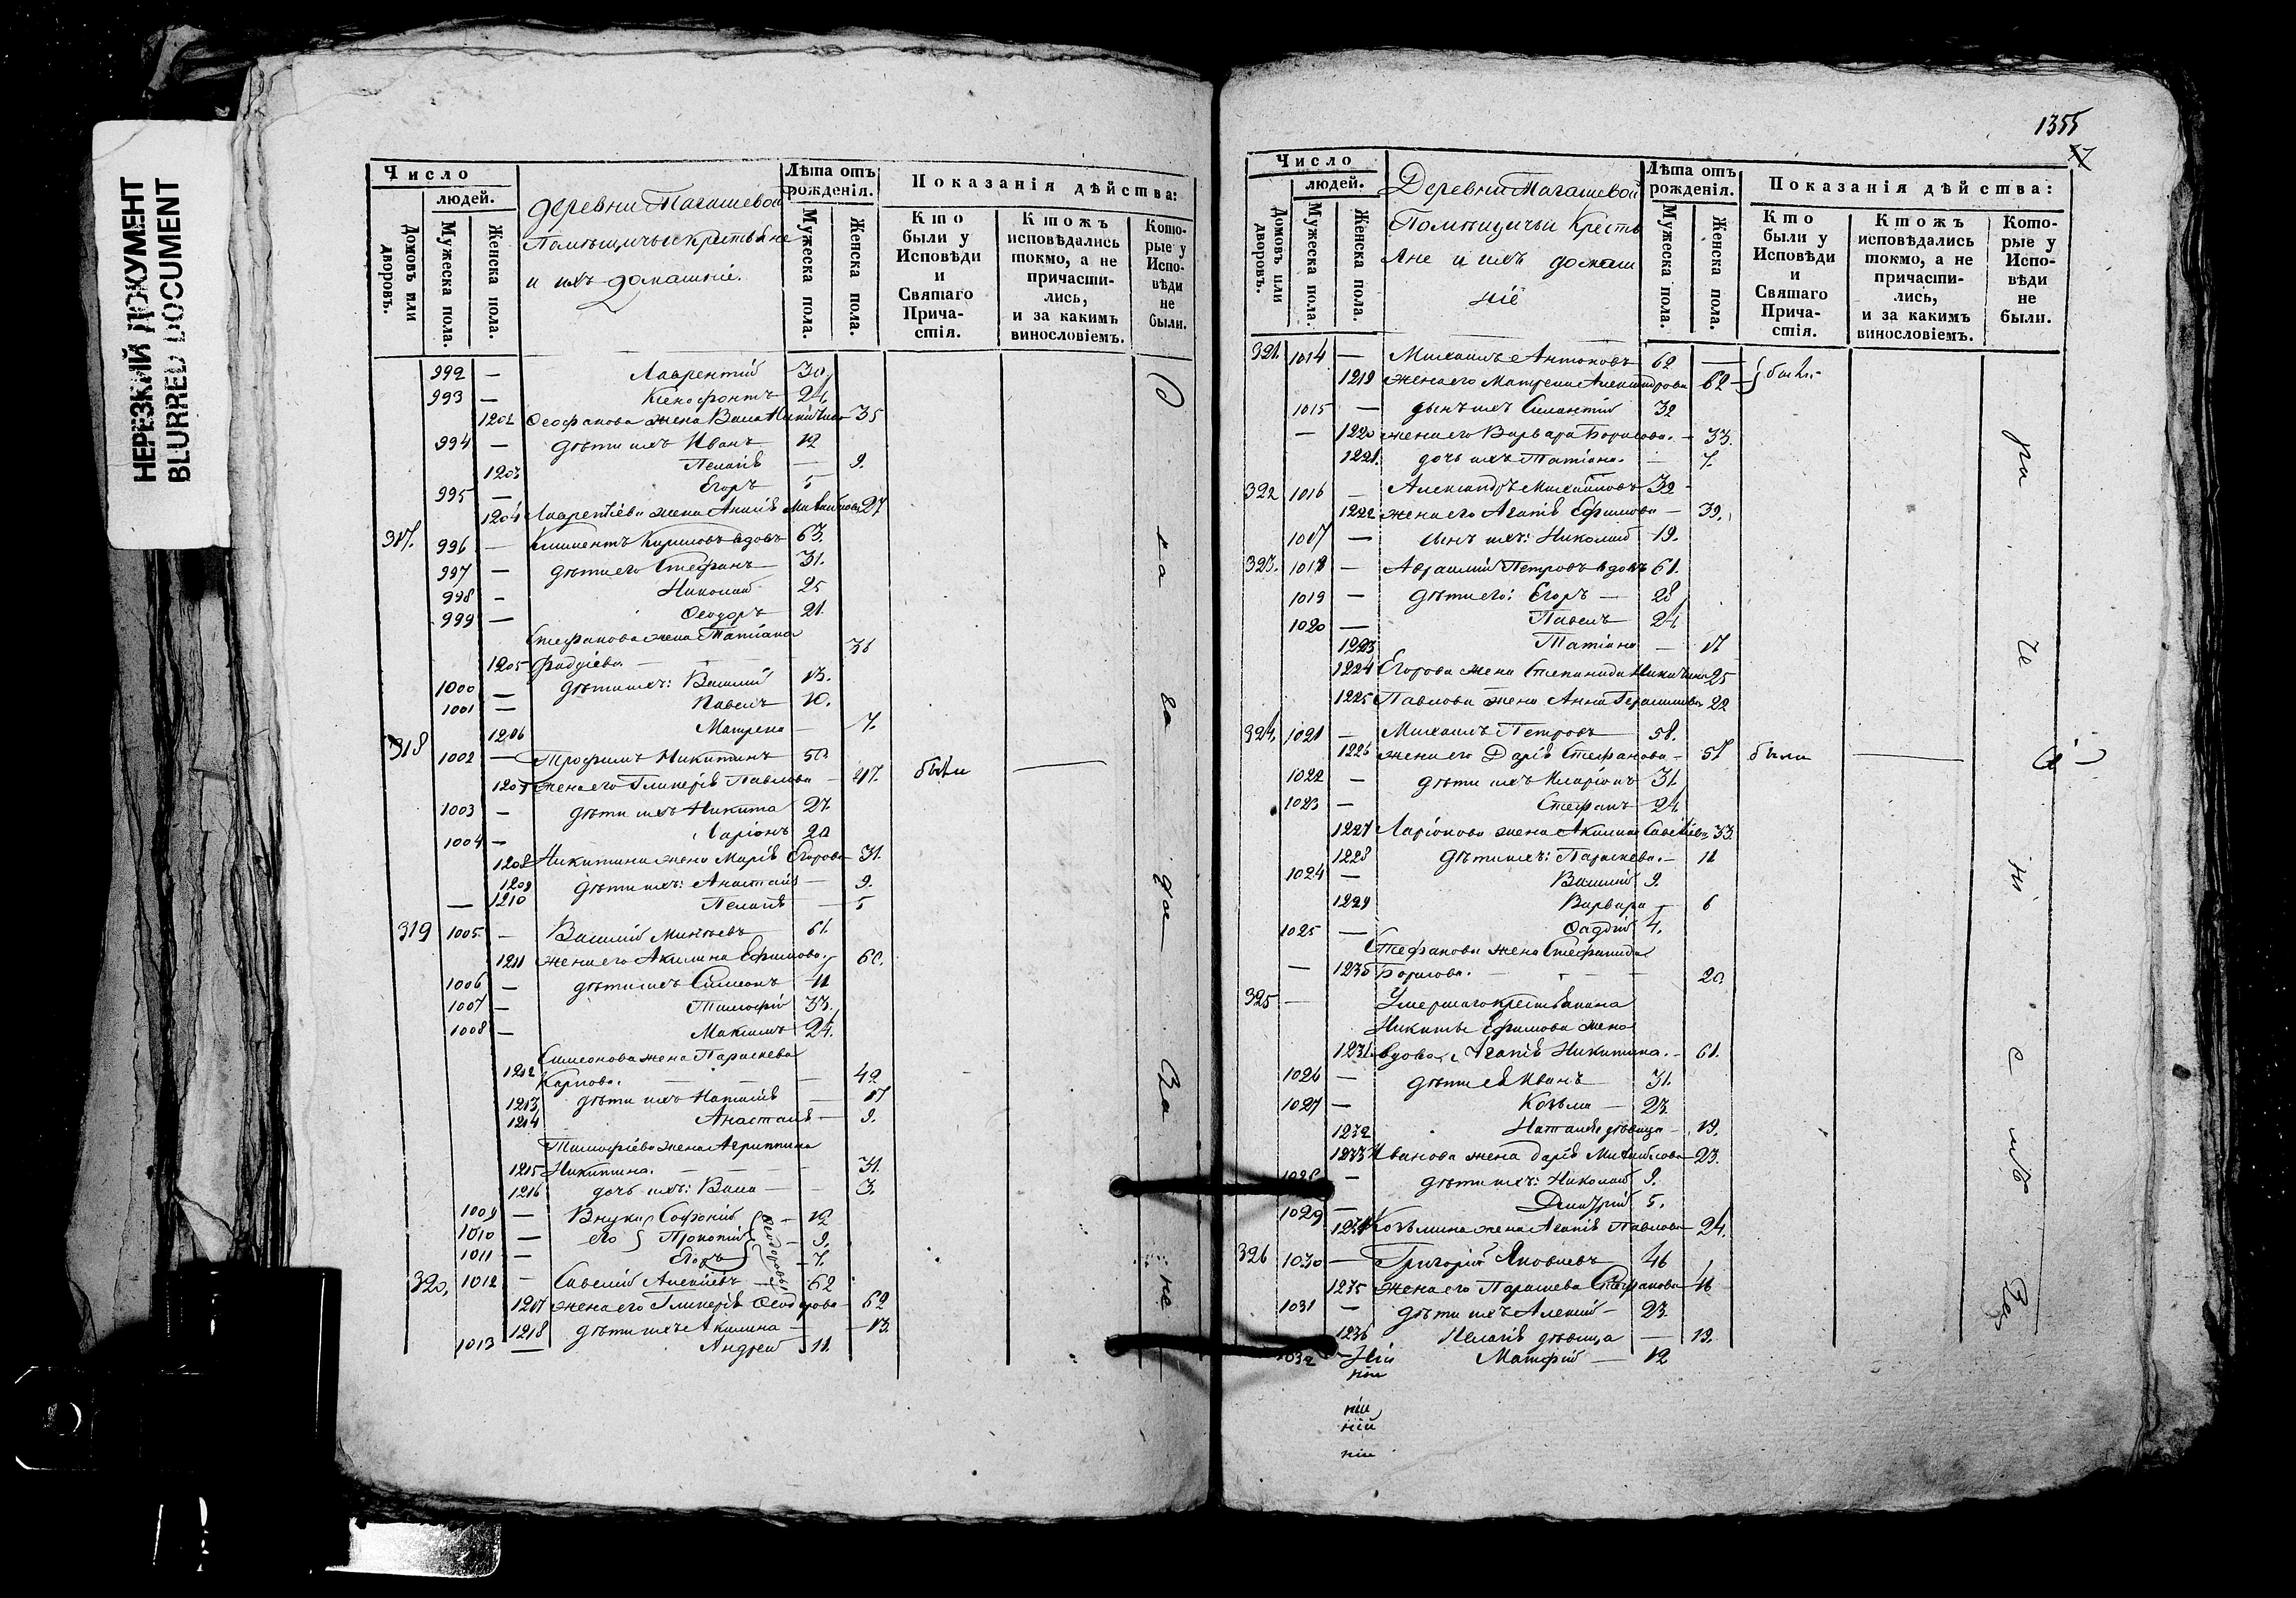 НЕРЕЗКИЙ ДОКУМЕНТ
BLURRED DOCUMENT
Число
людей.
Домовъ или дворовъ.
Мужеска пола.
Женска пола.
деревни Тагашевой
Помѣщичьи крестьяне
и ихъ домашніе.
Лѣта отъ рожденія.
Мужеска пола.
Женска пола.
Показанія дѣйства:
Кто были у Исповѣди и Святаго Причастія.
Ктожъ исповѣдались токмо, а не причастились, и за какимъ винословіемъ.
Которые у Исповѣди не были.
992 — Лаврентій 30
993 — Ксенофонтъ 24
1202 Ѳеофанова жена Васса Никитина 35
994 — дѣти ихъ Иванъ 12
1203 Пелагія — 9.
995 — Егоръ 5
1204 Лаврентіева жена Анисія 27
317. 996 — Климентъ Кириловъ вдовъ 63.
997 — дѣти его Стефанъ — 31.
998 — Николай 25
999 — Ѳеодоръ 21.
Стефанова жена Татіана
1205 Фадѣева — 36
1000 — дѣти ихъ: Василій 13.
1001 — Павелъ 10.
1206 Матрена — 7.
318 1002 — Трофимъ Никитинъ 50
1207 жена его Гликерія Павлова — 47. были
1003 — дѣти ихъ Никита 27.
1004 — Ларіонъ 20
1208 Никитина жена Марія Егорова 31.
1209 дѣти ихъ: Анастасія — 9.
— 1210 Пелагія — 5
319 1005 — Василій Минѣевъ 61.
1211 жена его Акилина Ефимова 60.
1006 — дѣти ихъ Симеонъ 41
1007 — Тимофей 33.
1008 — Максимъ 24.
Симеонова жена Параскева
1212 Карпова. — 42
1213 дѣти ихъ Наталія — 17
1214 Анастасія — 9.
Тимофѣева жена Агриппина
1215 Никитина. — 31.
1216 дочь ихъ: Васса — 3.
1009 — Внуки Софроній — 12
1010 — его Прокопій — 9.
1011 — Егоръ — 7.
Ѳеодоровы
320. 1012 — Савелій Алексѣевъ 62
1217 жена его Гликерія Ѳеодорова 62
1218 дѣти ихъ Акилина — 13.
1013 — Андрей 11.
1355
Число
людей.
Домовъ или дворовъ.
Мужеска пола.
Женска пола.
Деревни Тагашевой
Помѣщичьи Кресть
яне и ихъ домаш
ніе
Лѣта отъ рожденія.
Мужеска пола.
Женска пола.
Показанія дѣйства:
Кто были у Исповѣди и Святаго Причастія.
Ктожъ исповѣдались токмо, а не причастились, и за какимъ винословіемъ.
Которые у Исповѣди не были.
321. 1014 — Михаилъ Антоновъ 62 —
1219 жена его Матрена Александрова 62 — были
1015 — сынъ ихъ Силантій 32
— 1220 жена его Варвара Борисова. — 33.
1221. дочь ихъ Татіана. — 7.
322 1016 — Александръ Михайловъ 39
1222 жена его Агапія Ефимова — 39.
1017 — сынъ ихъ: Николай 19.
323. 1018 — Авраамій Петровъ вдовъ 61.
1019 — дѣти его: Егоръ — 28
1020 — Павелъ 24
1223 Татіана — 17
1224 Егорова жена Степанида Никитина 25
1225 Павлова жена Анна Герасимова 22
324. 1021 — Михаилъ Петровъ 58.
1226 жена его Дарія Стефанова — 57 были
1022 — дѣти ихъ Иларіонъ 31.
1023 — Стефанъ 24
1227 Ларіонова жена Акилина Савельева 33.
1228 дѣти ихъ: Параскева. — 11
1024 — Василій 9.
1229 Варвара — 6
1025 — Фаддѣй 4.
Стефанова жена Стефанида
— 1230 Борисова. — 20
325 — Умершаго крестьянина
Никиты Ефимова жена
1231 вдова Агапія Никитина. — 61.
1026 — дѣти ея Иванъ 31.
1027 — Козьма — 23
1232 Наталія дѣвица — 19.
1233 Иванова жена Дарія Михайлова 23.
1028 — дѣти ихъ: Николай 9.
1029 — Дмитрій 5.
1234 Козьмина жена Агапія Павлова 24.
326 1030 — Григорій Яковлевъ 46
1235 жена его Параскева Стефанова 46
1031 — дѣти ихъ Алексѣй — 23
1236 Пелагія дѣвица — 19.
1032 — Матфей — 12
ніи
ній
ніи